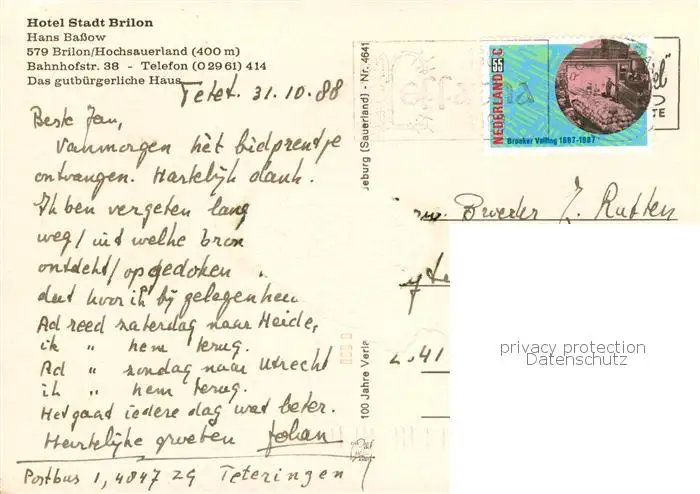 Hotel Stadt Brilon
Hans Baßow
579 Brilon/Hochsauerland (400 m)
Bahnhofstr. 38 - Telefon (0 29 61) 414
Das gutbürgerliche Haus
Tetet. 31.10.88
Beste Jan,
Vanmorgen het bidprentje
ontvangen. Hartelijk dank.
Ik ben vergeten lang
weg/uit welke bron
ontdekt/opgedoken
dat hoor ik bij gelegenhei
Ad reed zaterdag naar Heide,
ik " hem terug.
Ad " zondag naar Utrecht
ik " hem terug.
Het gaat iedere dag wat beter.
Hartelijke groeten Johan
Postbus 1, 4847 ZG Teteringen
100 Jahre Verla
deburg (Sauerland) - Nr. 4641
NEDERLAND
55 c
Broeker Veiling 1887-1987
Broeder J. Rutten
privacy protection
Datenschutz